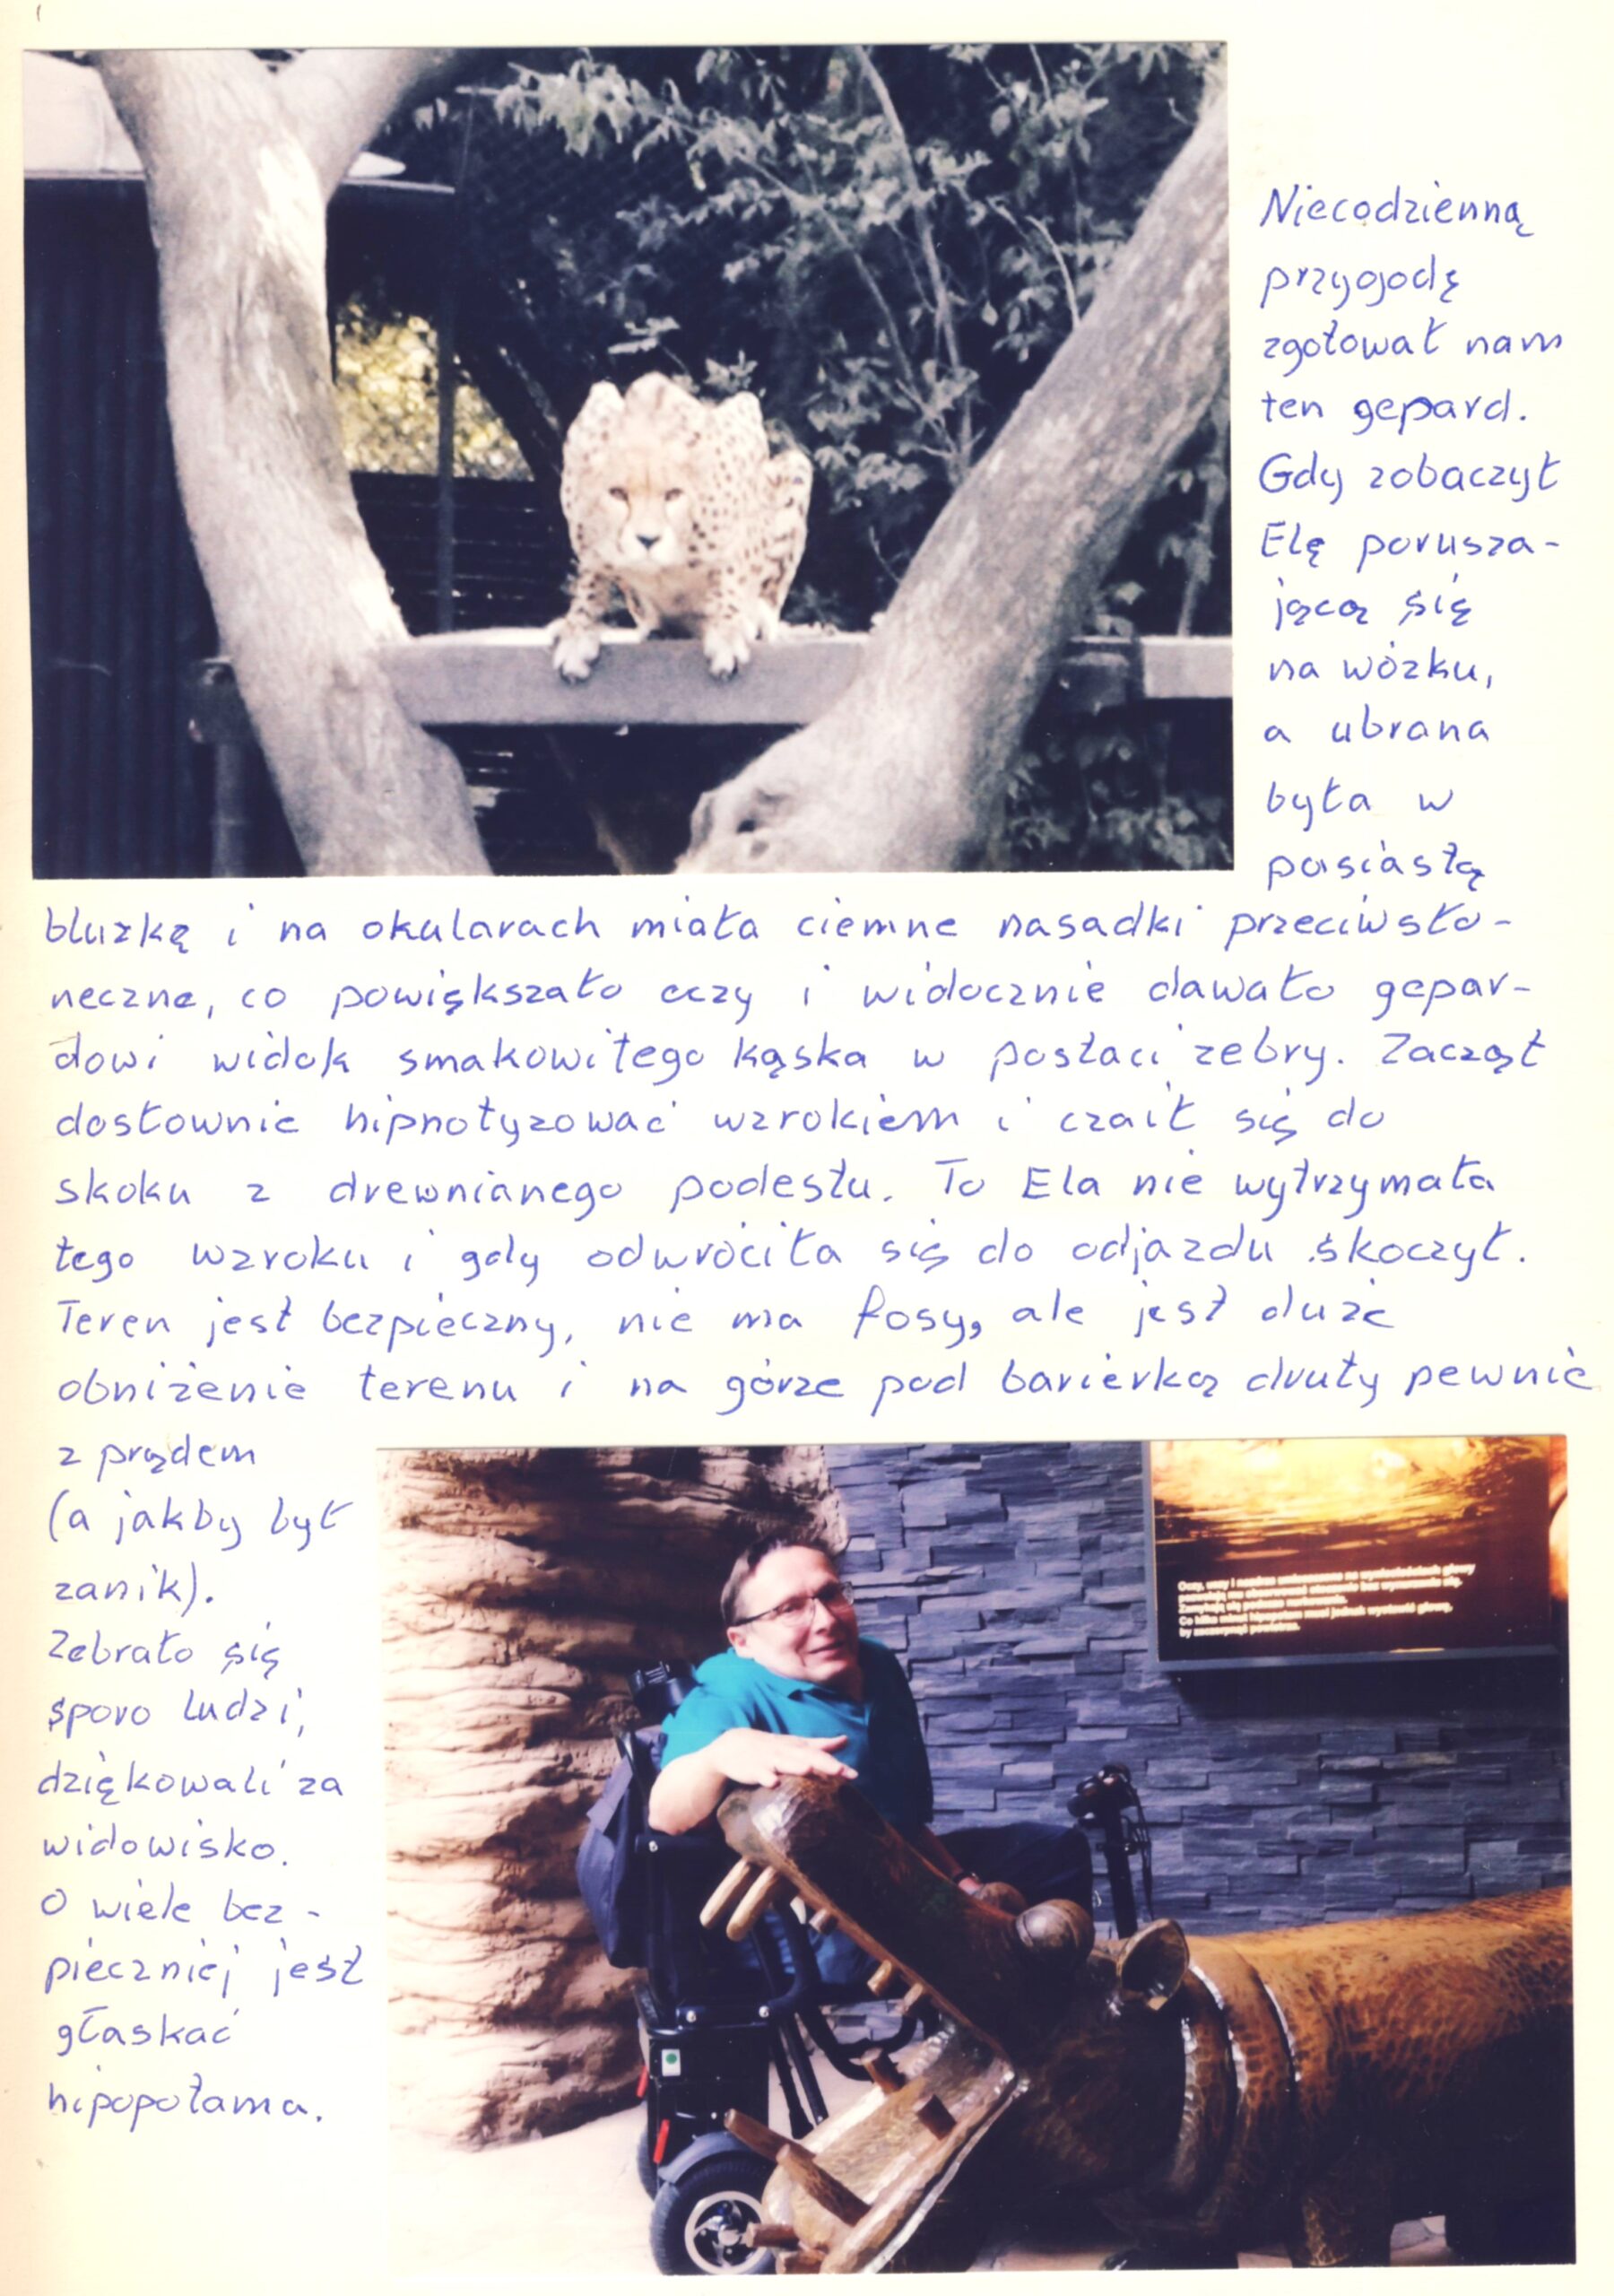 Niecodzienną
przygodę
zgotował nam
ten gepard.
Gdy zobaczył
Elę porusza-
jącą się
na wózku,
a ubrana
była w
pasiastą
bluzkę i na okularach miała ciemne nasadki przeciwsło-
neczne, co powiększało oczy i widocznie dawało gepar-
dowi widok smakowitego kąska w postaci zebry. Zaczął
dosłownie hipnotyzować wzrokiem i czaił się do
skoku z drewnianego podestu. To Ela nie wytrzymała
tego wzroku i gdy odwróciła się do odjazdu skoczył.
Teren jest bezpieczny, nie ma fosy, ale jest duże
obniżenie terenu i na górze pod barierką druty pewnie
z prądem
(a jakby był
zanik).
Zebrało się
sporo ludzi,
dziękowali za
widowisko.
O wiele bez-
pieczniej jest
głaskać
hipopotama.
Oczy, uszy i nozdrza umieszczone na wypukłościach głowy
by zaczerpnąć powietrza.